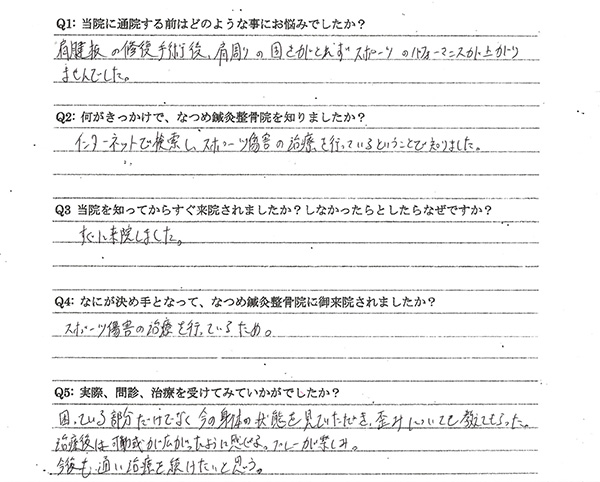 Q1: 当院に通院する前はどのような事にお悩みでしたか?
肩腱板の修復手術後、肩周りの固さがとれずスポーツのパフォーマンスが上がり
ませんでした。
Q2: 何がきっかけで、なつめ鍼灸整骨院を知りましたか?
インターネットで検索し、スポーツ傷害の治療を行っているということで知りました。
Q3 当院を知ってからすぐ来院されましたか?しなかったらとしたらなぜですか?
すぐに来院しました。
Q4: なにが決め手となって、なつめ鍼灸整骨院に御来院されましたか?
スポーツ傷害の治療を行っているため。
Q5: 実際、問診、治療を受けてみていかがでしたか?
困っている部分だけでなく今の身体の状態を見ていただき、歪みについても教えてもらった。
治療後は可動域が広がったように感じる。プレーが楽しみ。
今後も通い治療を続けたいと思う。